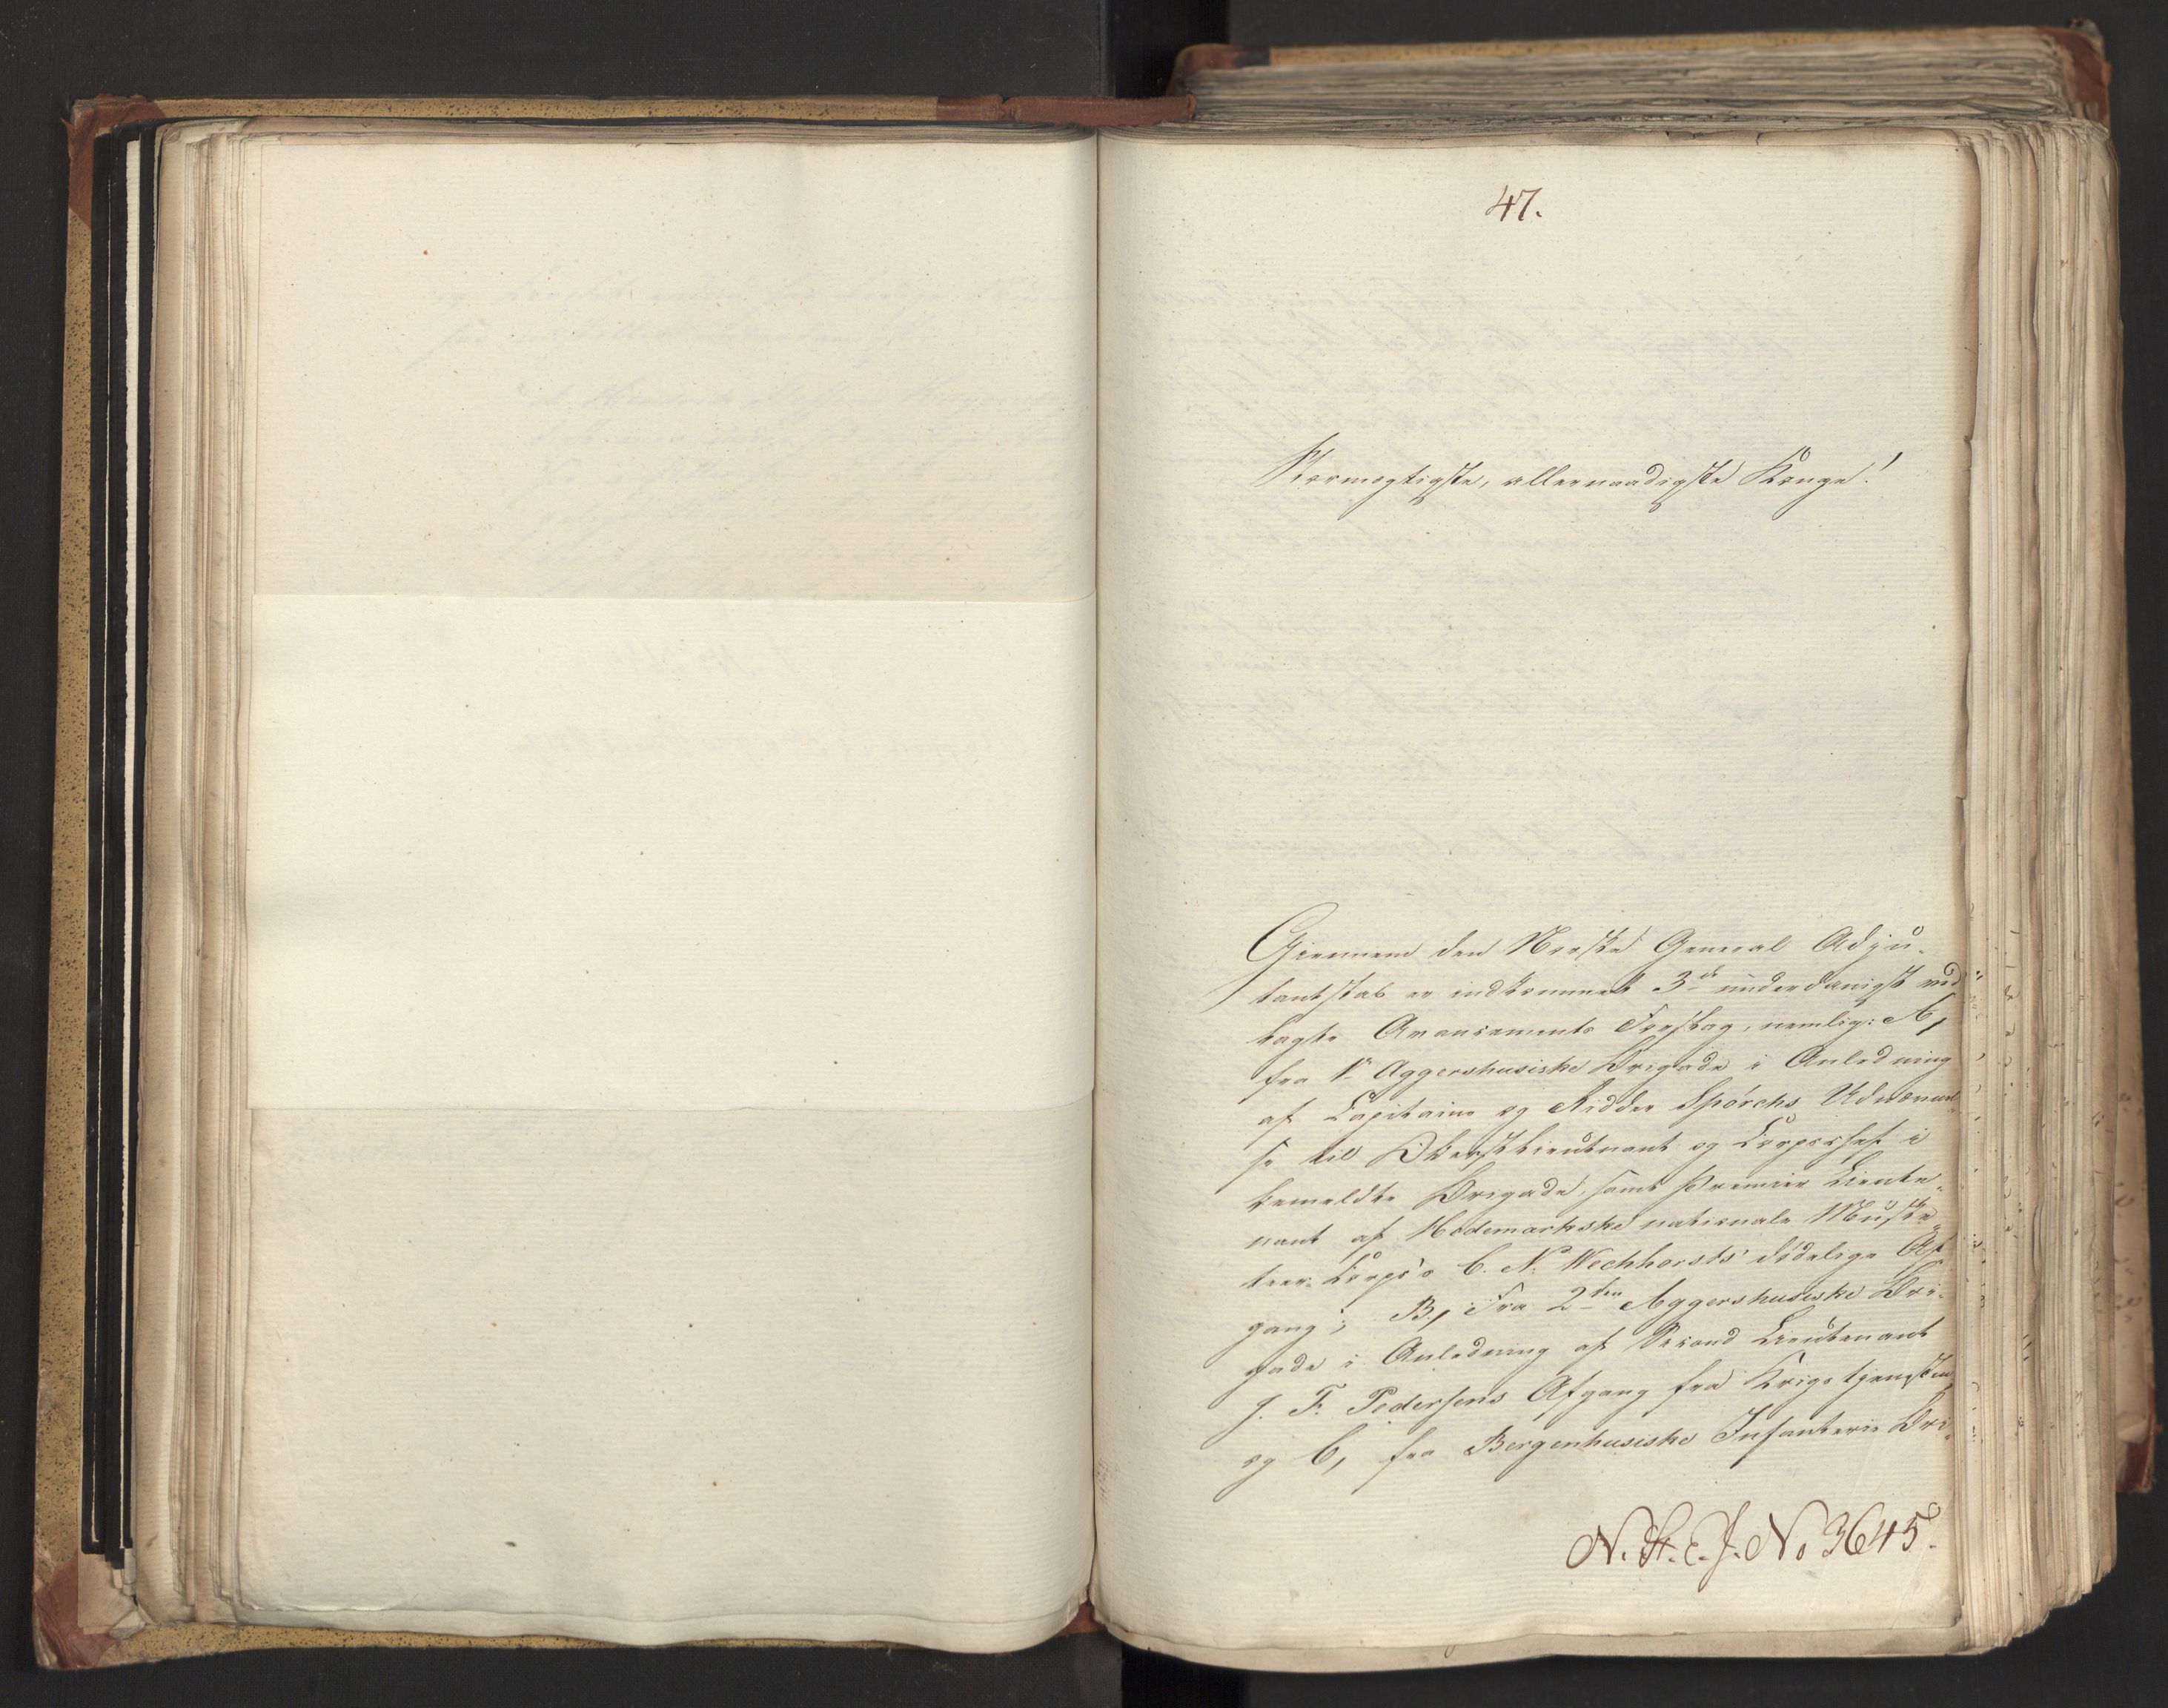 47.
Stormægtigste, allernaadigste Konge!
Giennem den Norske General Adju-
tantstab er indkommet 3de underdanigst ved
lagte Avancements Forslag, nemlig: A,
fra 1ste Aggershusiske Brigade i Anledning
af Capitaine og Ridder Spörchs Udnævnel-
se til Oberstlieutnant og Corpschef i
bemeldte Brigade, samt Premier Lieute-
nant af Hedemarkske nationale Muske-
teer-Corps's C. N. Wechhorsts' dødelige Af-
gang; B, Fra 2den Aggershusiske Bri-
gade i Anledning af Second Lieutenant
J. F. Pedersens Afgang fra Krigstjenesten
og C, fra Bergenhusiske Infanterie Bri-
N. St. E. J. No 3645.